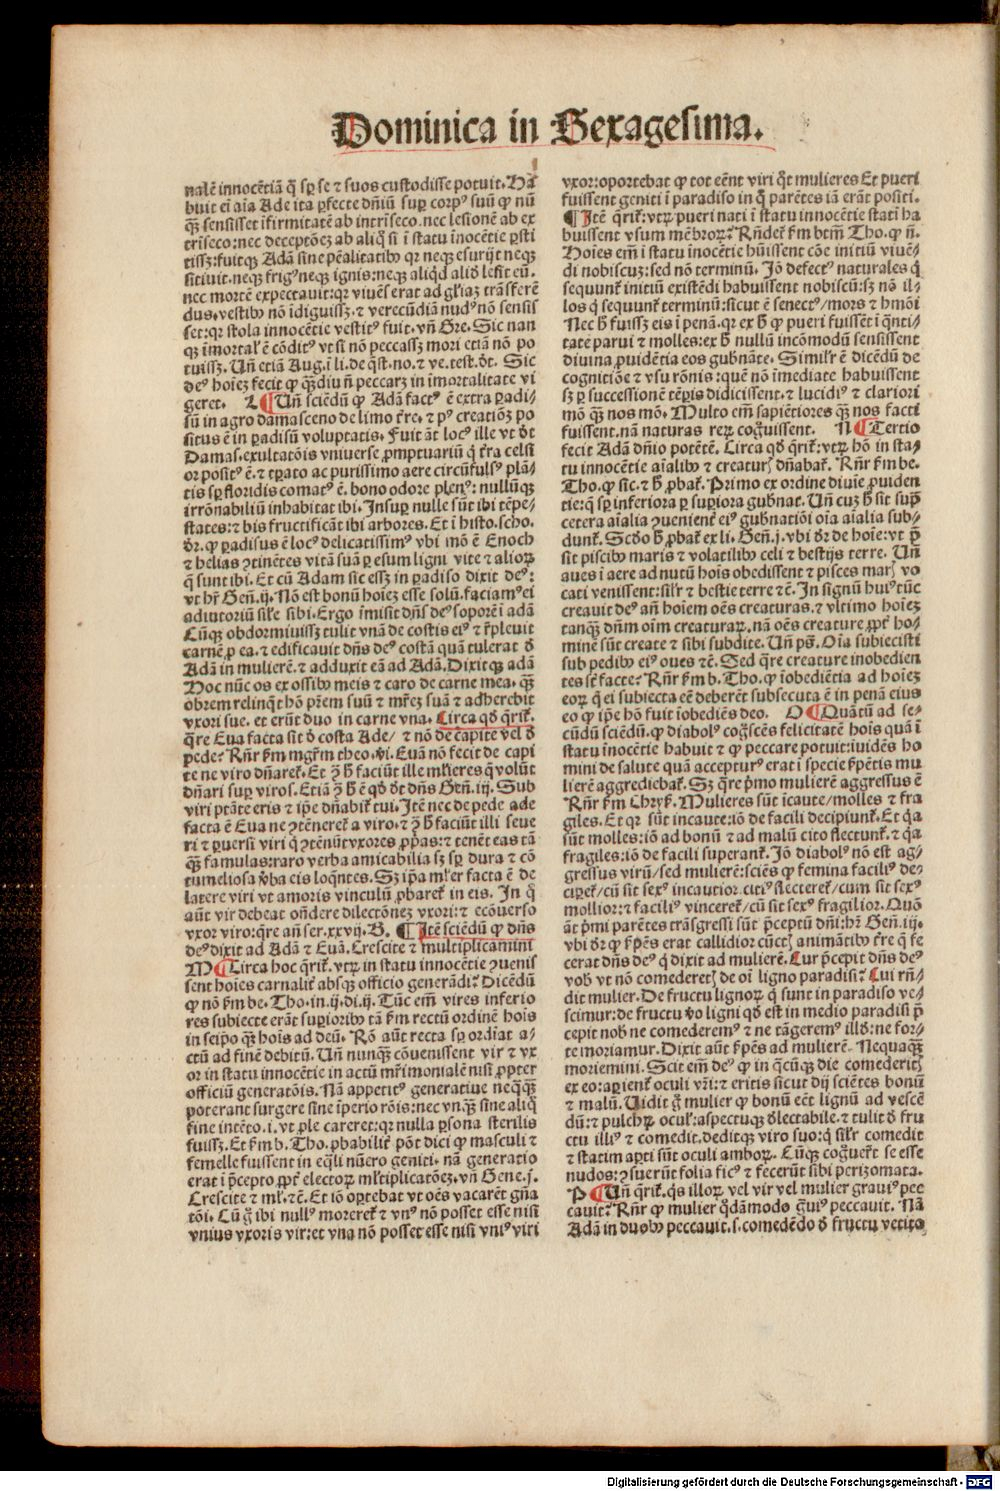 Dominica in Sexagesima.
nalē innocētiā q̄ sꝑ se ⁊ suos custodisse potuit. Ha
buit eī aīa Ade ita ꝑfecte dn̄iū suꝑ corpꝰ suū ꝙ nū
qꝫ̄ sensisset īfirmitatē ab intrīseco. nec lesionē ab ex
trīseco: nec deceptōeꝫ ab aliq̄ si ī statu īnocētie ꝑsti
tissꝫ: fuitqꝫ Adā sine pēalitatibꝰ qꝛ neqꝫ esurijt neqꝫ
sitiuit. neqꝫ frigꝰ neqꝫ ignis: neqꝫ aliqd aliđ lesit eū.
nec mortē expectauit: qꝛ viuēs erat ad gl'iaꝫ trāsferē
dus. vestibꝰ nō īdiguissꝫ. ⁊ verecūdiā nudꝰ nō sensis
set: qꝛ stola innocētie vestitꝰ fuit. vn̄ Gre. Sic nan
qꝫ īmortal' ē cōditꝰ vt si nō peccassꝫ mori etiā nō po
tuissꝫ. Un̄ etiā Aug. ī li. de q̄st. no. ⁊ ve. test. d̄t. Sic
deꝰ hoieꝫ fecit ꝙ qꝫ̄diu n̄ peccarꝫ in īmortalitate vi
geret. L ¶ Un̄ sciēdū ꝙ Adā factꝰ ē extra ꝑadi/
sū in agro damasceno de limo t're. ⁊ pꝰ creatiōꝫ po
situs ē in ꝑadisū voluptatis. Fuit āt locꝰ ille vt d̄t
Damas. exultatōis vniuerse ꝓmptuariū q̄ t'ra celsi
or positꝰ ē. ⁊ tꝑato ac purissimo aere circūfulsꝰ plā/
tis sꝑ floridis comatꝰ ē. bono odore plenꝰ: nullūqꝫ
irrōnabiliū inhabitat ibi. Insuꝑ nulle sūt ibi tēpe/
states: ⁊ bis fructificāt ibi arbores. Et ī histo. scho.
d̄r. ꝙ ꝑadisus ē locꝰ delicatissimꝰ vbi mō ē Enoch
⁊ helias ꝯtinētes vitā suā ꝑ esum ligni vite ⁊ alioꝝ
q̄ sunt ibi. Et cū Adam sic essꝫ in ꝑadiso dixit deꝰ:
vt hr̄ Gen̄. ij. Nō est bonū hoieꝫ esse solū. faciamꝰ ei
adiutoriū sil'e sibi. Ergo īmisit dn̄s deꝰ soporē ī adā
Cūqꝫ obdormiuissꝫ tulit vnā de costis eiꝰ ⁊ r̄pleuit
carnē ꝓ ea. ⁊ edificauit dn̄s deꝰ costā quā tulerat d̄
Adā in mulierē. ⁊ adduxit eā ad Adā. Dixitqꝫ adā
Hoc nūc os ex ossibꝰ meis ⁊ caro de carne mea. qꝫ̄
obrem relinq̄t hō pr̄em suū ⁊ mr̄eꝫ suā ⁊ adherebit
vxori sue. et erūt duo in carne vna. Circa qđ q̄rit̄.
q̄re Eua facta sit d̄ costa Ade/ ⁊ nō de capite vel d̄
pede? Rn̄r ẜm mgr̄m theo. vi. Eua nō fecit de capi
te ne viro dn̄aret̄. Et ꝯ h̄ faciūt ille ml'ieres q̄ volūt
dn̄ari suꝑ viros. Etiā ꝯ h̄ ē qđ d̄t dn̄s Gen̄. iij. Sub
viri ptāte eris ⁊ ip̄e dn̄abit̄ tui. Itē nec de pede ade
facta ē Eua ne ꝯtēneret̄ a viro. ⁊ ꝯ h̄ faciūt illi seue
ri ⁊ ꝑuersi viri q̄ ꝯtēnūt vxores ꝓp̄as: ⁊ tenēt eas tā
qꝫ̄ famulas: raro verba amicabilia sꝫ sꝑ dura ⁊ cō
tumeliosa v̄ba eis loq̄ntes. Sꝫ ip̄a ml'er facta ē de
latere viri vt amoris vinculū ꝓbaret̄ in eis. In q̄
aūt vir debeat on̄dere dilectōneꝫ vxori: ⁊ ecōuerso
vxor viro: q̄re an̄ ser. xxvij. B. ¶ Itē sciēdū ꝙ dn̄s
deꝰ dixit ad Adā ⁊ Euā. Crescite ⁊ multiplicamini
M ¶ Circa hoc q̄rit̄. vtꝝ in statu innocētie ꝯuenis
sent hoies carnalit̄ absqꝫ officio generādi? Dicēdū
ꝙ nō ẜm be. Tho. in. ij. di. ij. Tūc em̄ vires inferio
res subiecte erāt suꝑioribꝰ tā ẜm rectū ordinē hois
in seipo qꝫ̄ hois ad deū. Rō aūt recta sꝑ ordiat a/
ctū ad finē debitū. Un̄ nunqꝫ̄ cōuenissent vir ⁊ vx
or in statu innocētie in actū mr̄imonialē nisi ꝓpter
officiū generatōis. Nā appetitꝰ generatiue neq̄qꝫ̄
poterant surgere sine īperio rōis: nec vnqꝫ̄ sine aliq̄
fine intēto. i. vt ꝓle careret: qꝛ nulla ꝑsona sterilis
fuissꝫ. Et ẜm b. Tho. ꝓbabilit̄ pōt dici ꝙ masculi ⁊
femelle fuissent in eq̄li nūero geniti. nā generatio
erat ī p̄cepto ꝓpt̄ electoꝝ ml'tiplicatōeꝫ. vn̄ Gene. j.
Crescite ⁊ ml'. ⁊ē. Et iō oꝑtebat vt oēs vacarēt gn̄a
tōi. Cū g̊ ibi nullꝰ moreret̄ ⁊ vnꝰ nō posset esse nisi
vnius vxoris vir: et vna nō posset esse nisi vniꝰ viri
vxor: oportebat ꝙ tot eēnt viri q̄t mulieres Et pueri
fuissent geniti ī paradiso in q̄ parētes iā erāt positi.
¶ Itē q̄rit̄: vtꝝ pueri nati ī statu innocētie stati ha
buissent vsum mēbroꝝ? Rn̄det̄ ẜm btm̄ Tho. ꝙ n̄.
Hoies em̄ ī statu īnocētie hūissent cōe initiū viuē/
di nobiscuꝫ: sed nō terminū. Iō defectꝰ naturales q̄
sequunt̄ initiū existēdi habuissent nobiscū: sꝫ nō il/
los q̄ sequunt̄ terminū: sicut ē senectꝰ/ mors ⁊ hmōi
Nec h̄ fuissꝫ eis ī penā. qꝛ ex h̄ ꝙ pueri fuissēt ī q̄nti/
tate parui ⁊ molles: ex h̄ nullū incōmodū sensissent
diuina ꝓuidētia eos gubn̄āte. Simil'r ē dicēdū de
cognitiōe ⁊ vsu rōnis: quē nō īmediate habuissent
sꝫ ꝑ successionē tēꝑis didicissent. ⁊ lucidiꝰ ⁊ clariori
mō qꝫ̄ nos mō. Multo em̄ sapiētiores qꝫ̄ nos facti
fuissent. nā naturas reꝝ cog̊uissent. N ¶ Tertio
fecit Adā dn̄io potētē. Circa qđ q̄rit̄: vtꝝ hō in sta/
tu innocētie aīalibꝰ ⁊ creaturis dn̄abat̄. Rn̄r ẜm be.
Tho. ꝙ sic. ⁊ h̄ ꝓbat̄. Primo ex ordine diuīe ꝓuiden
tie: q̄ sꝑ inferiora ꝑ suꝑiora gubnat. Un̄ cuꝫ h̄ sit supͣ
cetera aīalia ꝯuenient̄ eiꝰ gubn̄atiōi oīa aīalia sub/
dunt̄. Scđo h̄ ꝓbat̄ ex li. Gen̄. j. vbi d̄r de hoie: vt p̄
sit piscibꝰ maris ⁊ volatilibꝰ celi ⁊ bestijs terre. Un̄
aues ī aere ad nutū hois obedissent ⁊ pisces maris vo
cati venissent: sil'r ⁊ bestie terre ⁊ē. In signū huiꝰ tūc
creauit deꝰ an̄ hoiem oēs creaturas. ⁊ vltimo hoieꝫ
tanqꝫ̄ dn̄m oīm creaturaꝝ. nā oēs creature ꝓpt̄ ho/
minē sūt create ⁊ sibi subdite. Un̄ pṡ. Oīa subiecisti
sub pedibꝰ eiꝰ oues ⁊ē. Sed q̄re creature inobedien
tes st̄ facte? Rn̄r ẜm b. Tho. ꝙ īobediētia ad hoieꝫ
eoꝝ q̄ ei subiecta eē deberēt subsecuta ē in penā eius
eo ꝙ ip̄e hō fuit īobediēs deo. O ¶ Quātū ad se/
cūdū sciēdū. ꝙ diabolꝰ cog̊scēs felicitatē hois quā ī
statu īnocētie habuit ⁊ ꝙ peccare potuit: īuidēs ho
mini de salute quā accepturꝰ erat ī specie ẜpētis mu
lierē aggrediebat̄. Sꝫ q̄re p̄mo mulierē aggressus ē
Rn̄r ẜm Chrys̄. Mulieres sūt īcaute/ molles ⁊ fra
giles. Et qꝛ sūt incaute: iō de facili decipiunt̄. Et qꝛ
sūt molles: iō ad bonū ⁊ ad malū cito flectunt̄. ⁊ qꝛ
fragiles: iō de facili superant̄. Iō diabolꝰ nō est ag/
gressus virū/ sed mulierē: sciēs ꝙ femina faciliꝰ de/
ciꝑet̄/ cū sit sexꝰ incautior. citiꝰ flecteret̄/ cum sit sexꝰ
mollior: ⁊ faciliꝰ vinceret̄/ cū sit sexꝰ fragilior. Quō
āt p̄mi parētes trāsgressi sūt p̄ceptū dn̄i: hr̄ Gen̄. iij.
vbi d̄r ꝙ ẜpēs erat callidior cūctis animātibꝰ t'rę q̄ fe
cerat dn̄s deꝰ q̄ dixit ad mulierē. Cur p̄cepit dn̄s deꝰ
vob̄ vt nō comederetis de oī ligno paradisi? Cui rn̄/
dit mulier. De fructu lignoꝝ q̄ sunt in paradiso ve/
scimur: de fructu v̄o ligni qđ est in medio paradisi p̄
cepit nob̄ ne comederemꝰ ⁊ ne tāgeremꝰ illđ: ne for/
te moriamur. Dixit aūt ẜpēs ad mulierē. Nequaqꝫ̄
moriemini. Scit em̄ deꝰ ꝙ in q̄cūqꝫ die comederitis
ex eo: aꝑient̄ oculi vr̄i: ⁊ eritis sicut dij sciētes bonū
⁊ malū. Uidit g̊ mulier ꝙ bonū eēt lignū ad vescē
dū: ⁊ pulchꝝ ocul': aspectuqꝫ d̄lectabile. ⁊ tulit d̄ fru
ctu illiꝰ ⁊ comedit. deditqꝫ viro suo: q̄ sil'r comedit
⁊ statim aꝑti sūt oculi amboꝝ. Cūqꝫ cog̊uer̄t se esse
nudos: ꝯsuerūt folia ficꝰ ⁊ fecerūt sibi perizomata.
P ¶ Un̄ q̄rit̄. q̄s illoꝝ vel vir vel mulier grauiꝰ pec
cauit? Rn̄r ꝙ mulier q̄dāmodo g̊uiꝰ peccauit. Nā
Adā in duobꝰ peccauit. s. comedēdo d̄ fructu vetito
Digitalisierung gefördert durch die Deutsche Forschungsgemeinschaft - DFG